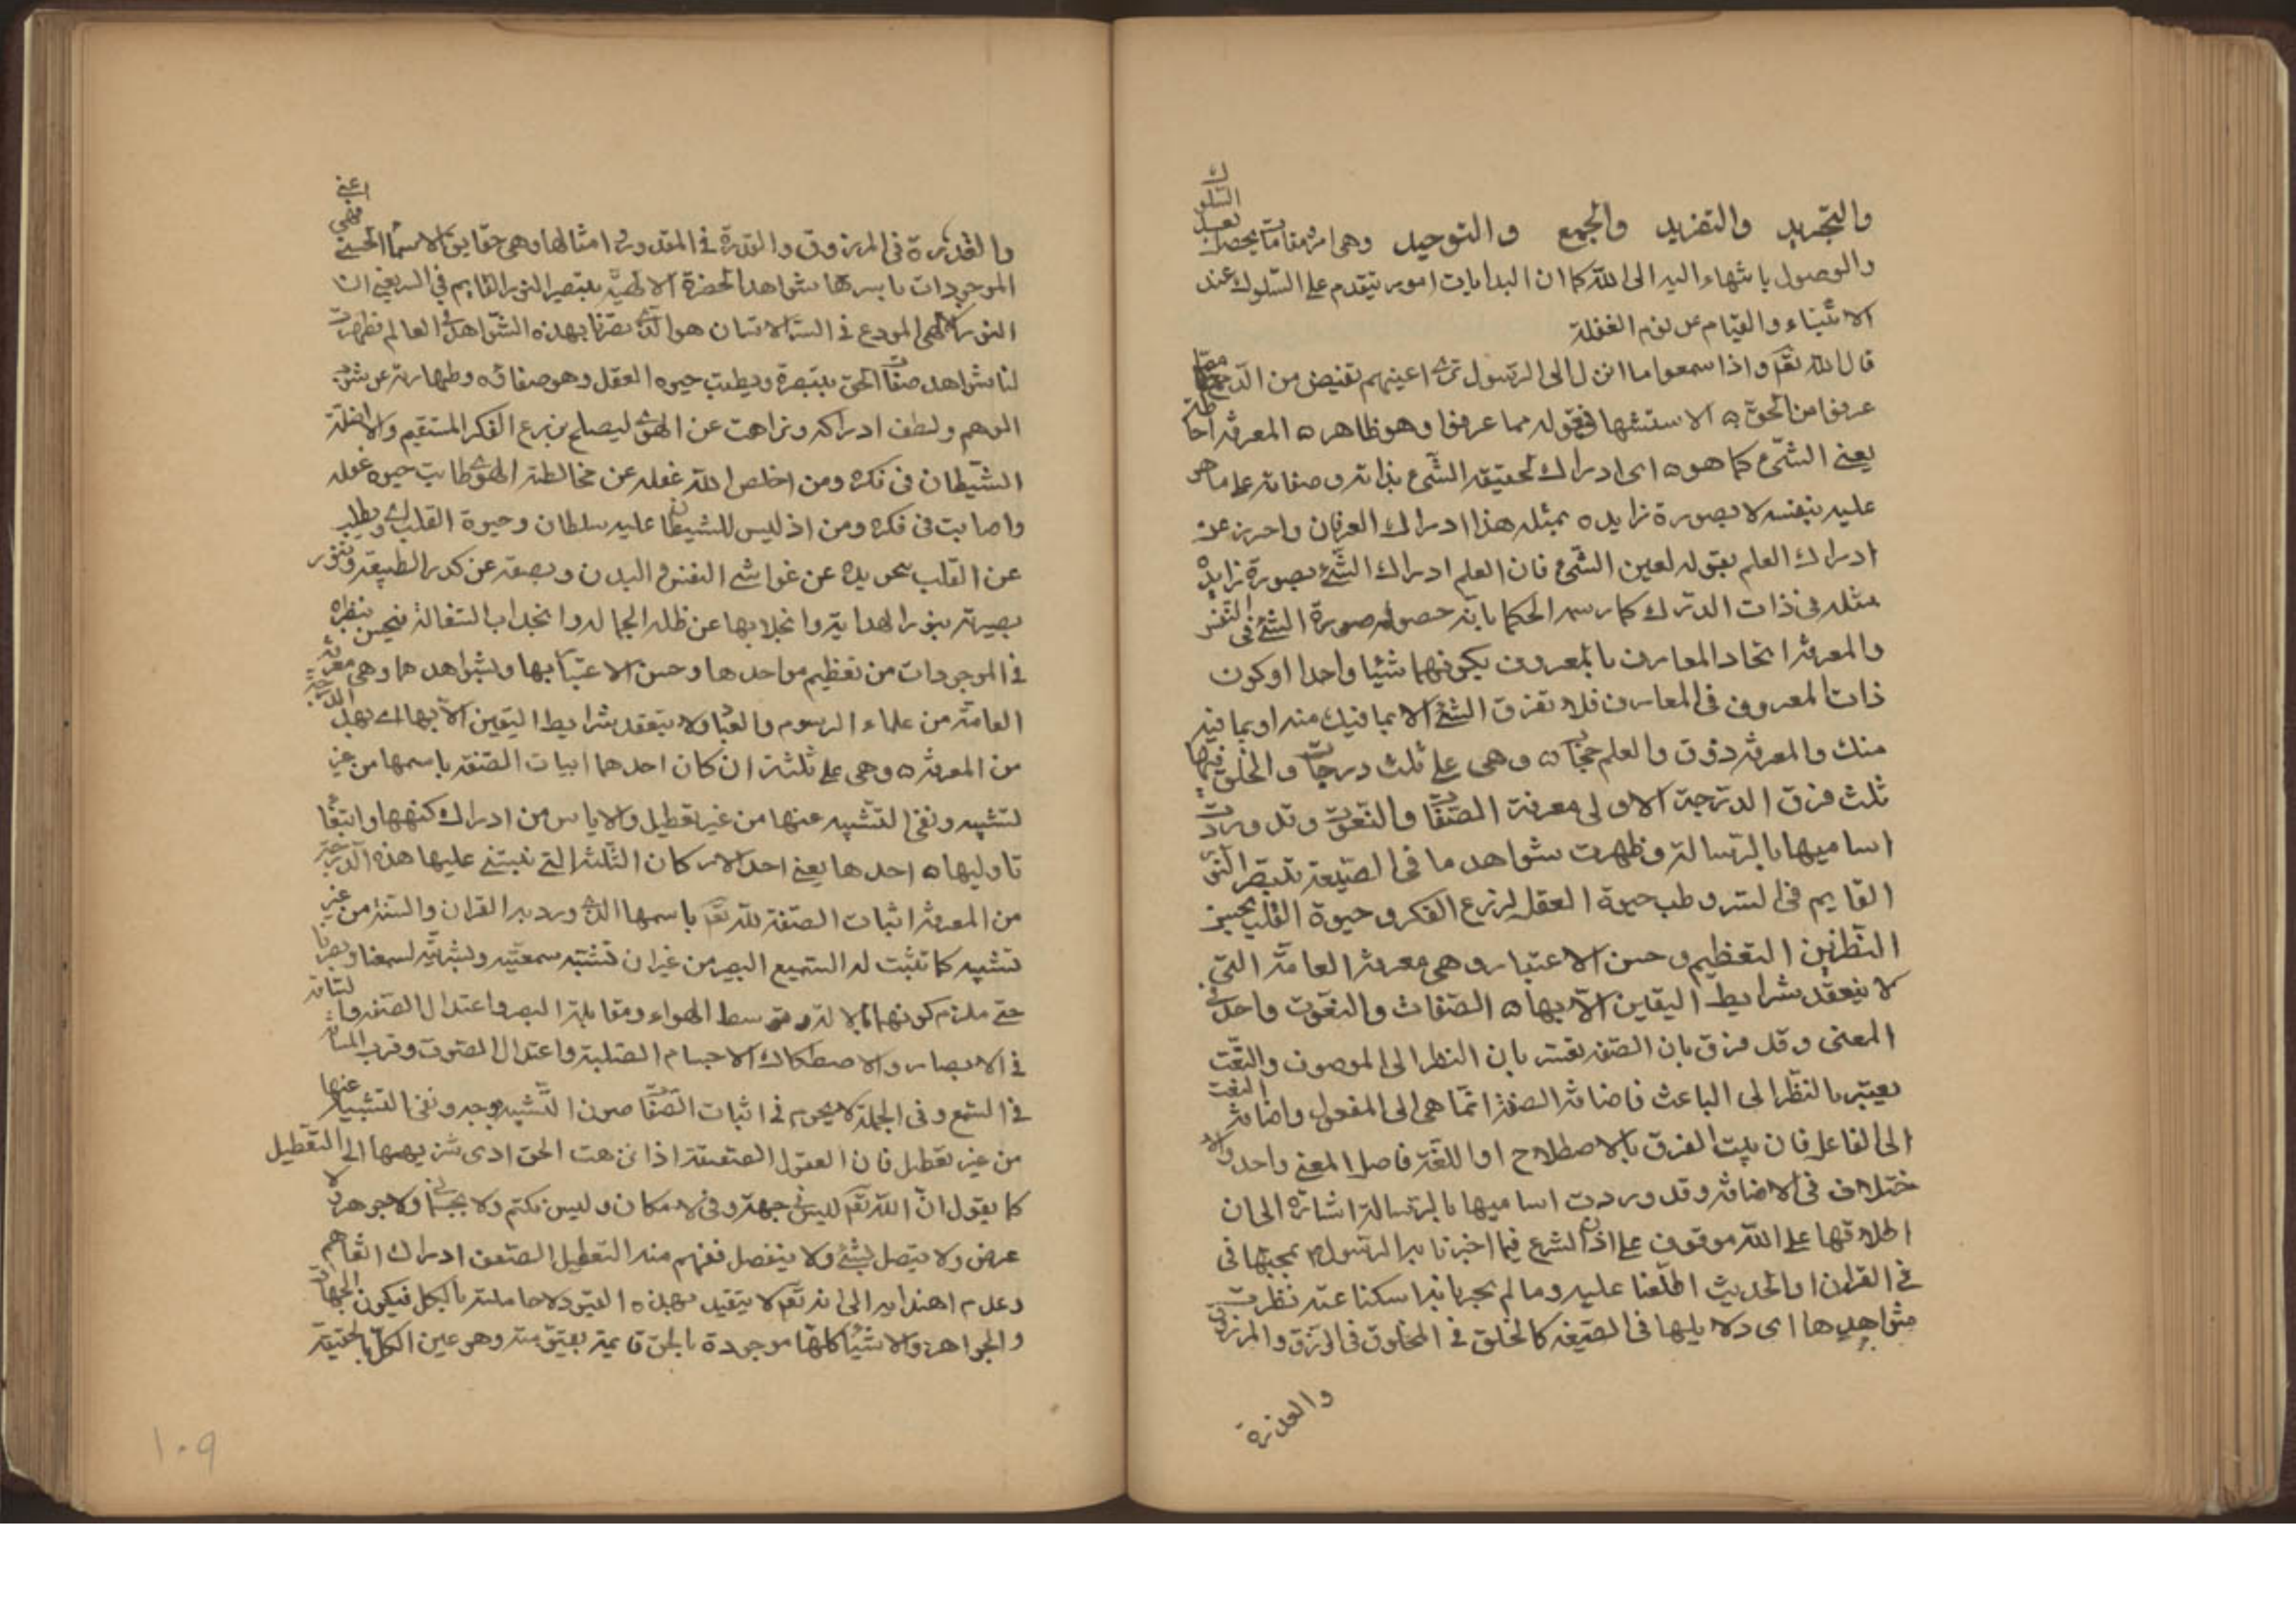 والتجريد والتفريد والجمع والتوحيد وهى امور مقامات يحصل بعد السلوك
والوصول بانتهاء السير الى الله كما ان البدايات امور يتقدم على السلوك عند
الانتباه والقيام عن نوم الغفلة
قال الله تعم واذا سمعوا ما انزل الى الرسول ترى اعينهم تفيض من الدمع مما
عرفوا من الحق ه الاستشهاد فى قوله مما عرفوا وهو ظاهر ه المعرفة احاطة
بعين الشئ كما هو ه اى ادراك لحقيقة الشئ بذاته وصفاته على ما هو
عليه بنفسه لا بصورة زايده بمثله هذا ادراك العرفان واحرز عن
ادراك العلم بقوله لعين الشئ فان العلم ادراك الشئ بصورة زايدة
مثله فى ذات المدرك كما رسمه الحكما بانه حصول صورة الشئ فى النفس
والمعرفة اتحاد العارف بالمعروف بكونهما شيئا واحدا او كون
ذات المعروف فى العارف فلا تعرف الشئ الا بما فيك منه او بما فيه
منك والمعرفة ذوق والعلم حجاب ه وهى على ثلث درجات والخلق فيها
ثلث فرق الدرجة الاولى معرفة الصفات والنعوت وقد وردت
اساميها بالرسالة وظهرت شواهدها فى الصنعة بتبصير النور
القايم فى السر وطيب حيوة العقل لزرع الفكر وحيوة القلب بحسن
النظر بين التعظيم وحسن الاعتبار وهى معرفة العامة التى
لا ينعقد شرايط اليقين الا بها ه الصفات والنعوت واحد فى
المعنى وقد فرق بان الصفة تعتبر بان النظر الى الموصوف والنعت
يعتبر بالنظر الى الباعث فاضافة الصفة انما هى الى المفعول واضافة النعت
الى الفاعل فان يثبت الفرق بالاصطلاح او اللغة فاصل المعنى واحد والا
ختلاف فى الاضافة وقد وردت اساميها بالرسالة اشارة الى ان
اطلاقها على الله موقوف على اذن الشرع فما اخبرنا به الرسول م بمجيئها فى
فى القران او الحديث اطلقنا عليه وما لم يخبرنا به اسكتنا عنه نظرت
شواهدها اى دلايلها فى الصنعه كالخلق فى المخلوق فى الرزق والمرزوق
والقدرة
والقدرة فى المرزوق والقدرة فى المقدور وامثالها وهى حقايق الاسما الحسنى اعنى فهى
الموجودات باسرها شواهد الحضرة الالهية بتبصير النور القايم فى السر يعنى ان
النور الالهى المودع فى السر الانسان هو الذى بصرنا بهذه الشواهد فى العالم فظهرت
لنا شواهد صفات الحق بتبصره وبطيب حيوه العقل وهو صفاؤه وطهارته عن شوب
الوهم ولطف ادراكه ونزاهته عن الهوى ليصلح لزرع الفكر المستقيم والا ضله
الشيطان فى فكره ومن اخلص الله عقله عن مخالطة الهوى طابت حيوه عقله
واصابت فى فكره ومن اذ ليس للشيطان عليه سلطان وحيوة القلب اى ويطيب
عن القلب بتجريده عن غواشى النفس والبدن وبصفة عن كدر الطبيعة وتنور
بصيرته بنور الهداية وانجلايها عن ظلمة الجهالة وانجذاب السفالة فيحسن بنظره
فى الموجودات من تعظيم موجدها وحسن الاعتبار بها وبشواهدها وهى معرفة
العامة من علماء الرسوم والعباد ولا ينعقد شرايط اليقين الا بها اى بهذه الدرجة
من المعرفة ه وهى على ثلثة اركان احدها اثبات الصفة باسمها من غير
تشبيه ونفى التشبيه عنها من غير تعطيل والاياس من ادراك كنهها وابتغاء
تاويلها ه احدها يعنى احد الاركان الثلثة التى يبتنى عليها هذه الدرجة
من المعرفة اثبات الصفة لله تعم باسمها الذى ورد به القران والسنة من غير
تشبيه كما تثبت له السميع البصير من غير ان تشبه سمعيته وبصريته لسمعنا وبصرنا
حتى ملزم كونهما بالالة وتوسط الهواء ومقابلة البصر واعتدال الصفه والمسافة
فى الابصار والاصطكاك الاجسام الصلبة واعتدال الصوت وقرب المسافة
فى السمع وفى الجملة لا يحوم فى اثبات الصفات صون التشبيه بوجه ونفى التشبيه عنها
من غير تعطيل فان العقول الضعيفة اذا نزهت الحق ادى تنزيهها الى التعطيل
كما يقول ان الله تعم ليس فى جهة وفى لا مكان وليس بكم ولا بجسم ولا جوهر ولا
عرض ولا يتصل بشئ ولا ينفصل ففهم منه التعطيل لضعف ادراك افهامهم
وعدم اهتدايه الى انه تعم لا يتقيد بهذه القيود لاحاطته بالكل فيكون الجهات
والجواهر والاشياء كلها موجودة بالحق قايمة بعين منه وهو عين الكل بالحقيقة
١٠٩